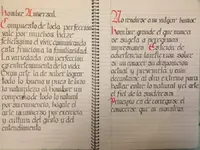 Hombre Universal.
Compuesto de toda perfección
vale por muchos. Hace
felicísimo el vivir, comunicando
esta fruición a la familiaridad.
La variedad con perfección
es entretenimiento de la vida.
Gran arte la de saber lograr
todo lo bueno y pues le hizo
la naturaleza al hombre un
compendio de todo lo natural
por su eminencia, hágale el
arte un universo por ejercicio
y cultura del gusto y del
entendimiento.
No rendirse a un vulgar humor.
Hombre grande el que nunca
se sujeta a peregrinas
impresiones. Es lección de
advertencia la reflexión sobre
sí un conocer su disposición
actual y prevenirla y aun
decantarse al otro extremo para
hallar entre lo natural y el arte
el fiel de la sindéresis.
Principio es de corregirse el
conocerse, que hay monstruos